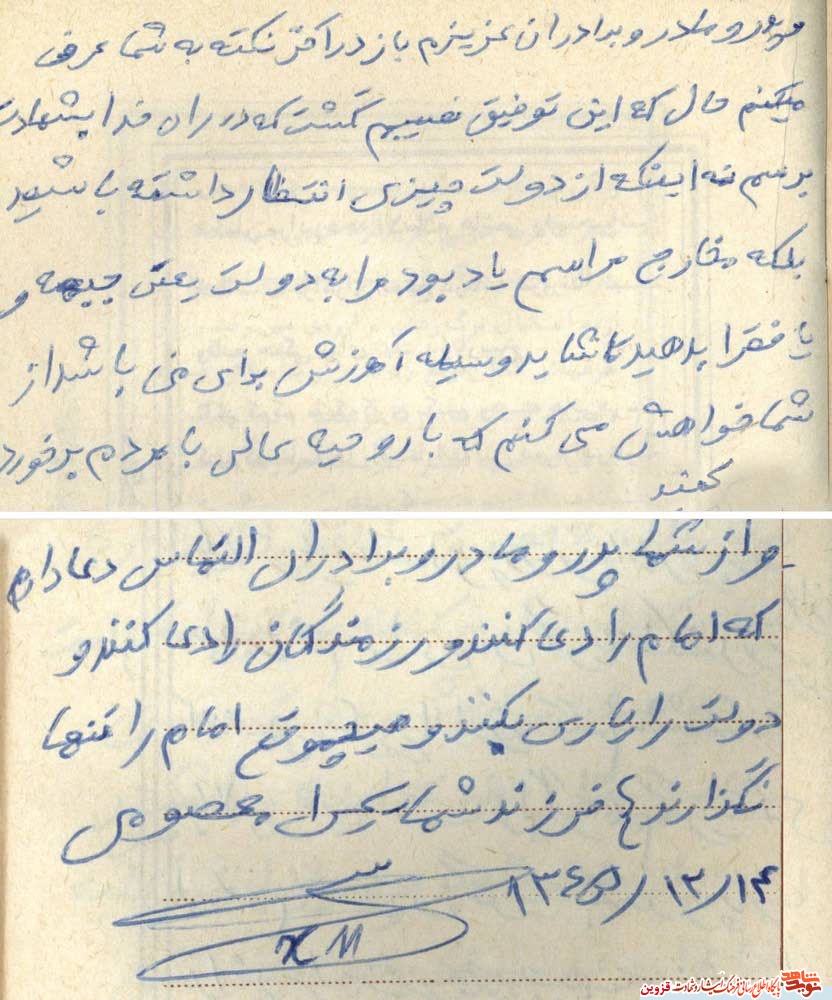 و پدر و مادر و برادران عزیزم باز در آخر نکته به شما عرض
میکنم حال که این توفیق نصیبم گشت که در راه خدا بشهادت
برسم نه اینکه از دولت چیزی انتظار داشته باشید
بلکه مخارج مراسم یادبود مرا به دولت یعنی جبهه و
یا فقرا بدهید تا شاید وسیله آمرزش برای من باشد از
شما خواهش می کنم که با روحیه عالی با مردم برخورد
کنید
و از شما پدر و مادر و برادران التماس دعا دارم
که امام را دعا کنند و رزمندگان را دعا کنند و
دولت را یاری بکنند و هیچموقع امام را تنها
نگذارند فرزند شما معصومی
XM
نوید شاهد
پایگاه اطلاع رسانی فرهنگ ایثار و شهادت قزوین